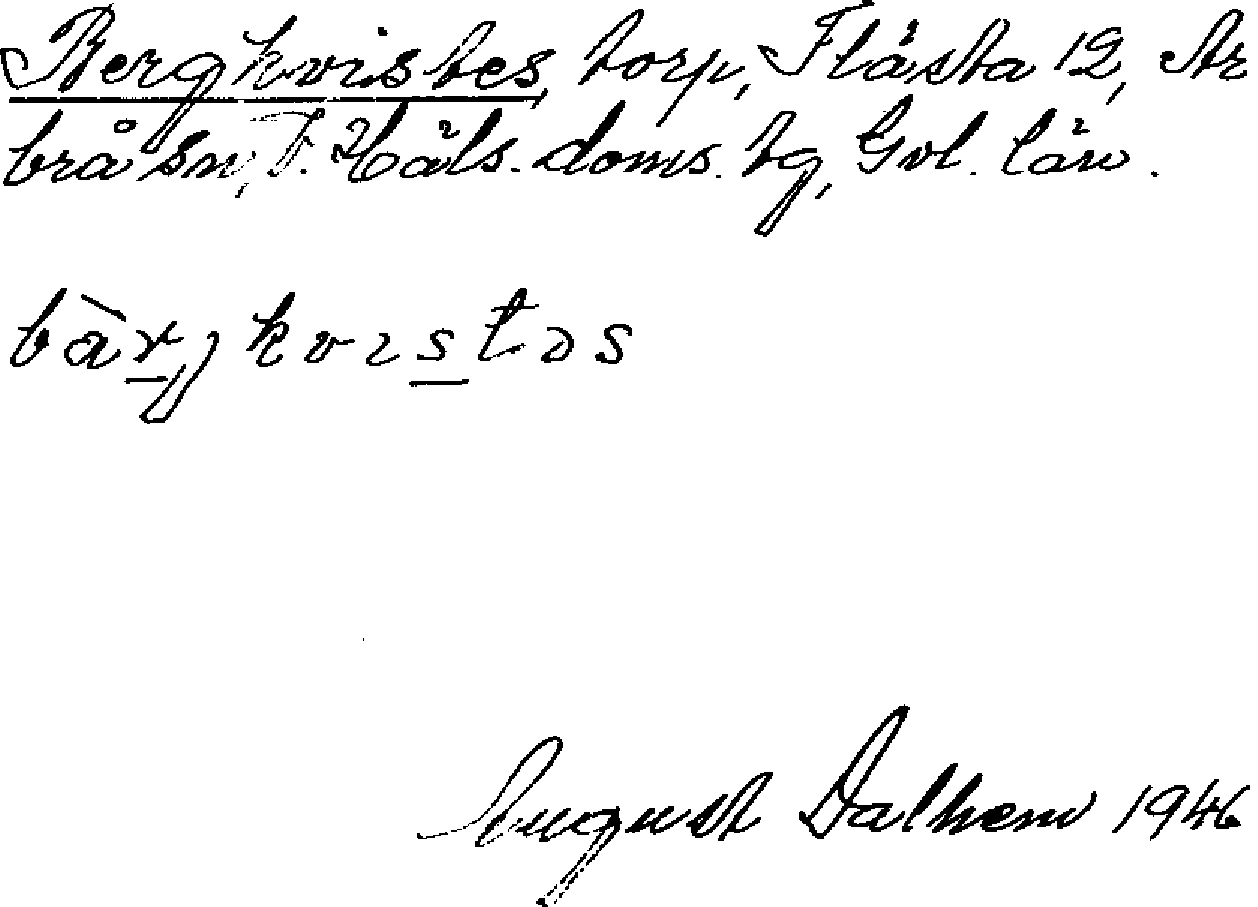 Bergkvistes, torp, Flästa 12, Ar
brå sn, V. Häls. doms. tg, Gvl. län.
bàrgkvɪstəs
August Dalhem 1946